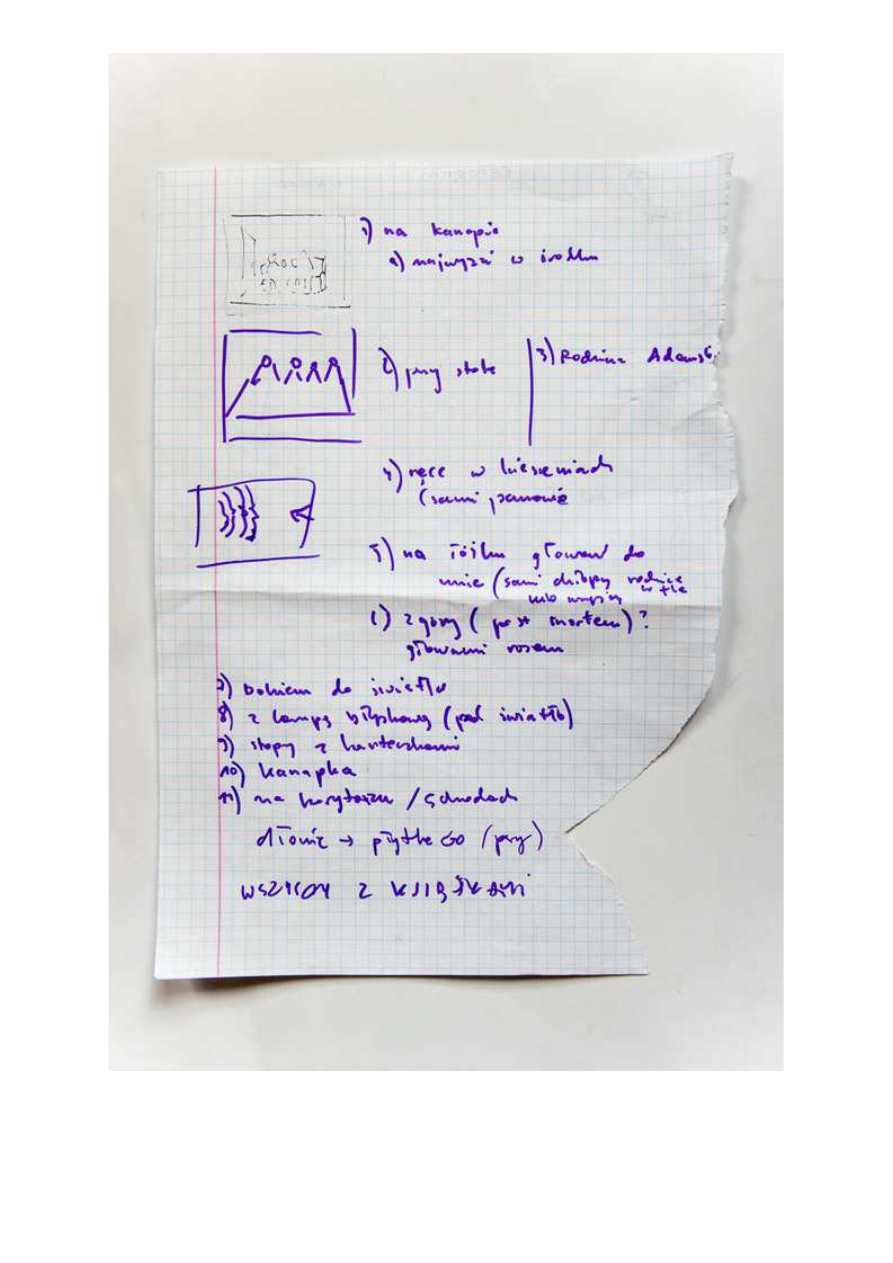 1) na kanapie
a) najwyżsi w środku
2) przy stole
3) Rodzina Adams
4) ręce w kieszeniach
(sami panowie
5) na łóżku głowami do
mnie (sami chłopcy rodzice
w tle
lub wszyscy
6) z góry (post mortem)?
głowami razem
7) bokiem do światła
8) z lampą błyskową (pod światło)
9) stopy z karteczkami
10) kanapka
11) na korytarzu / schodach
dłonie → płytkie GO (przy)
WSZYSCY Z KSIĄŻKAMI